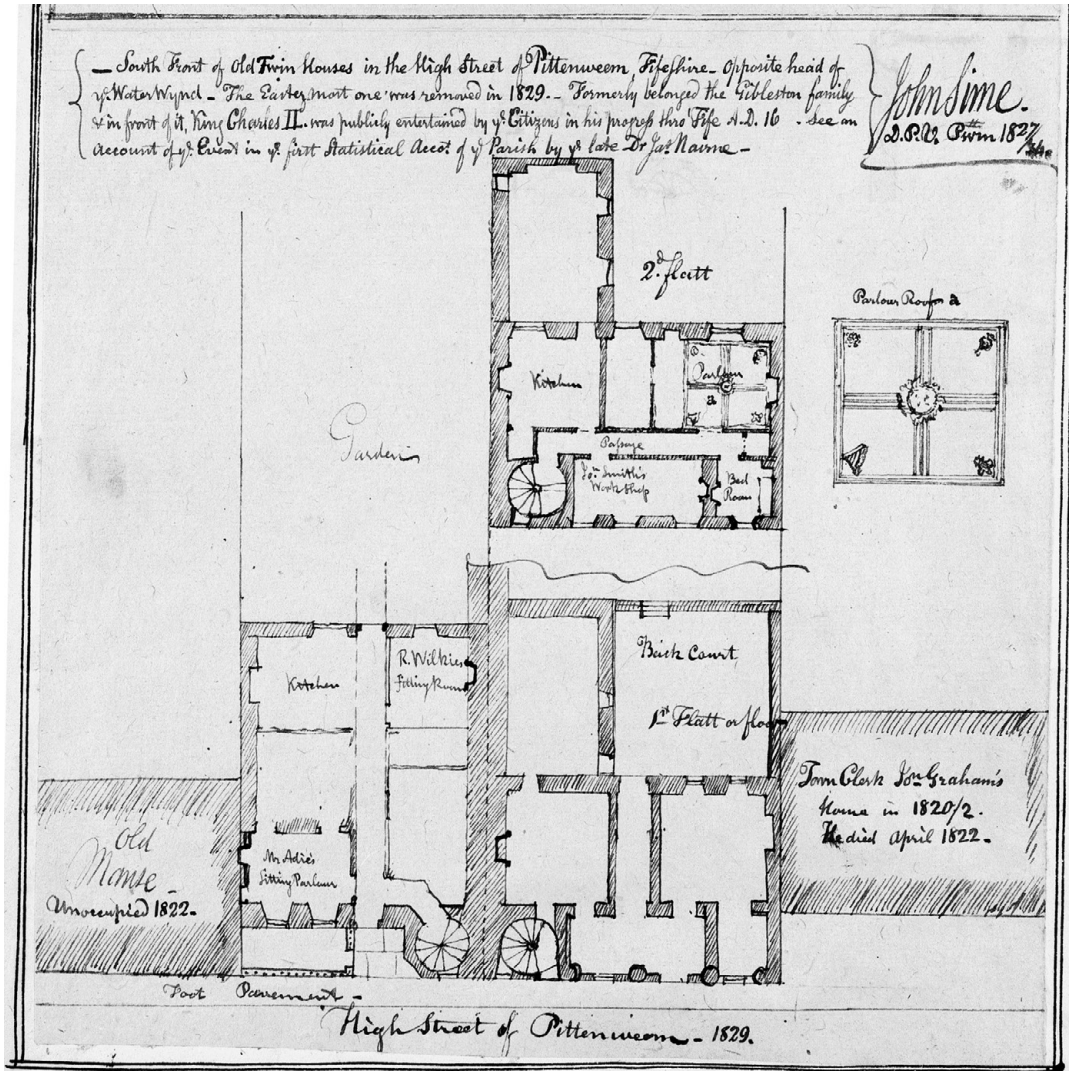 — South Front of Old Twin Houses in the High Street of Pittenweem, Fifeshire — Opposite head of
ye Water Wynd — The Eastermost one was removed in 1829. — Formerly belonged the Gibleston family
& in front of it, King Charles II. was publicly entertained by ye Citizens in his progress thro Fife A.D. 16 . See an
Account of ye Event in ye first Statistical Accot of ye Parish by ye late Dr Jas Nairne —
John Sime.
Pittm 1827
2d flatt
Parlour Roof a
Kitchen
Parlour
a
Passage
Jon Smith's
Work Shop
Bed
Room
Garden
Back Court
1st Flatt or floor
Kitchen
R. Wilkies
Sitting Room
Mr Adie's
Sitting Parlour
Old
Manse —
Unoccupied 1822.
Town Clerk Jon Graham's
Home in 1820/2.
He died April 1822 —
Foot Pavement —
High Street of Pittenweem — 1829.